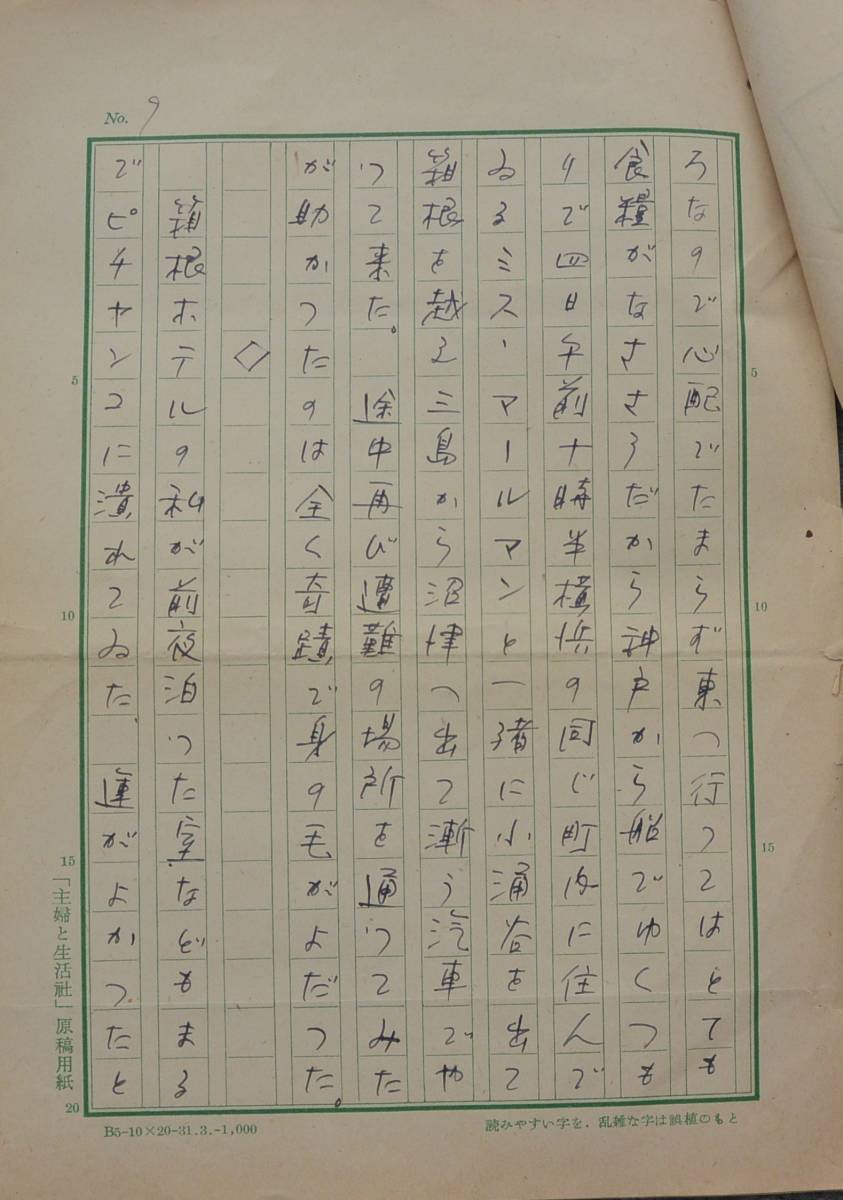 No. 9
ろなので心配でたまらず東へ行つてはとても
食糧がなささうだから神戸から船でゆくつも
りで四日午前十時半横浜の同じ町内に住んで
ゐるミス、マールマンと一緒に小涌谷を出て
箱根を越え三島から沼津へ出て漸う汽車でや
つて来た。 途中再び遭難の場所を通つてみた
が助かつたのは全く奇蹟で身の毛がよだつた。
◇
箱根ホテルの私が前夜泊つた室などもまる
でピチヤンコに潰れてゐた、運がよかつたと
5
10
15
20
5
10
15
「主婦と生活社」原稿用紙
B5-10×20-31.3.-1,000
読みやすい字を、乱雑な字は誤植のもと